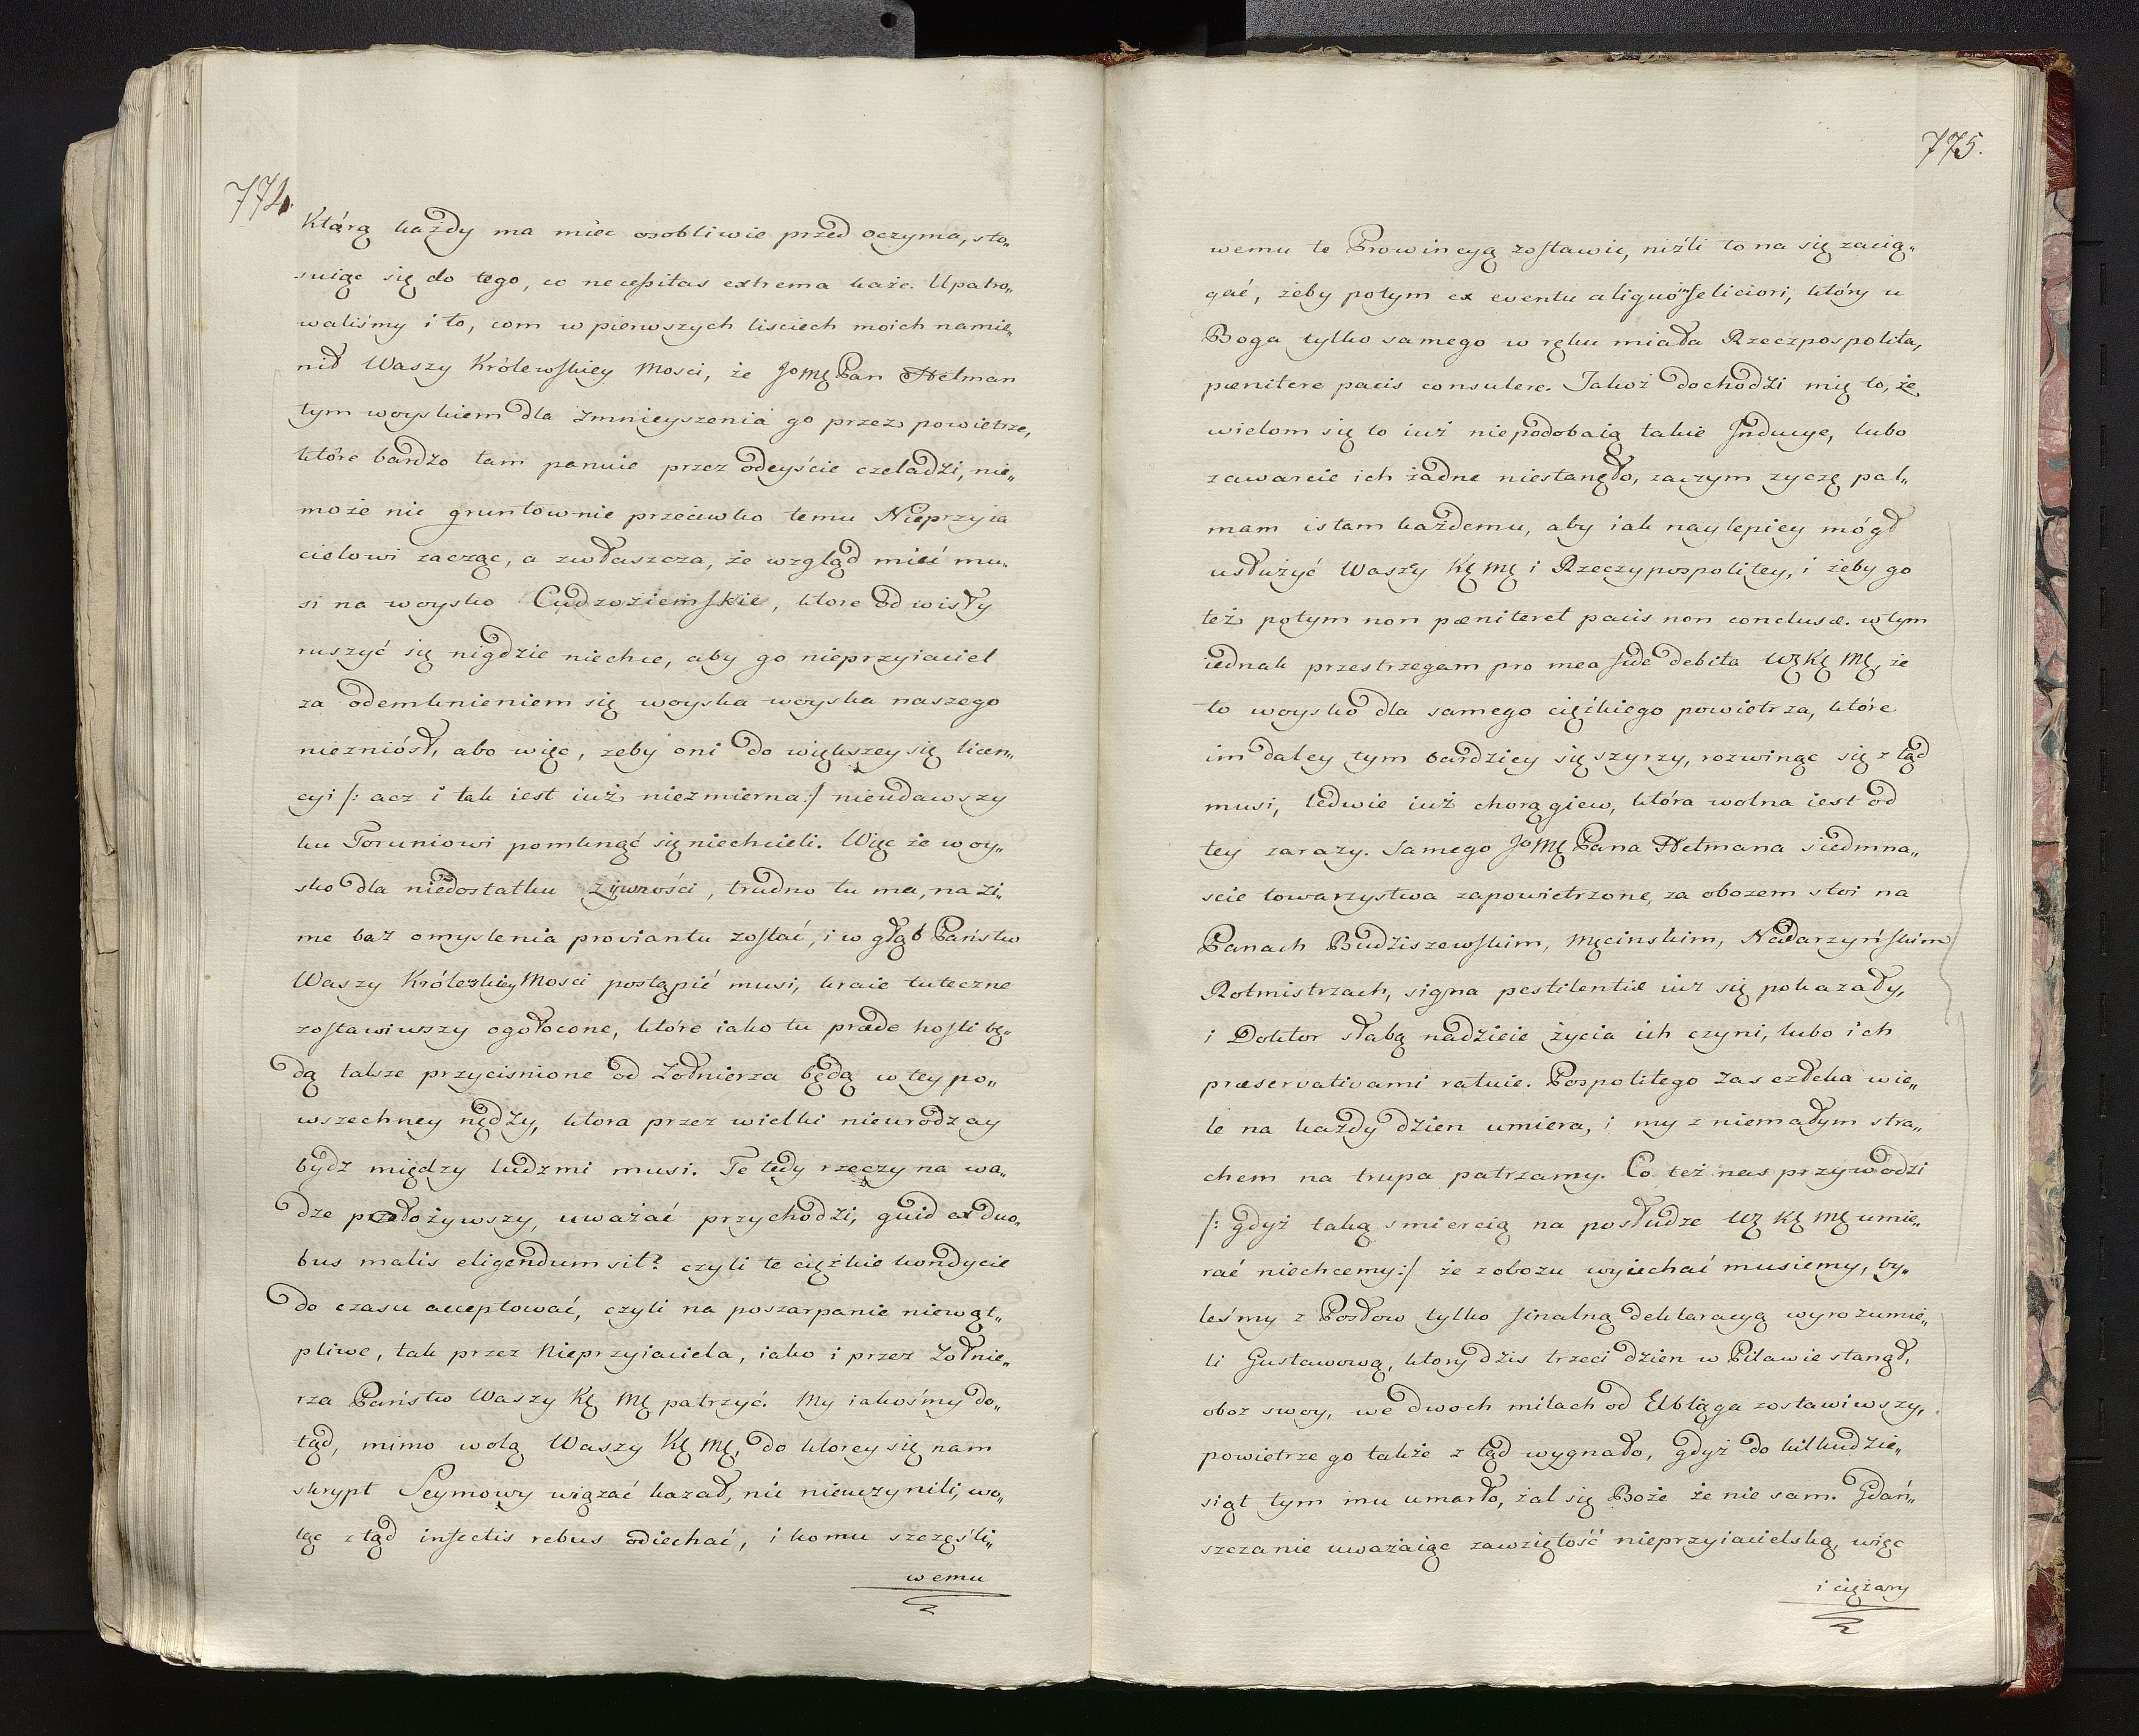 774.
Którą każdy ma miec osobliwie przed oczyma, sto„
suiąc się do tego, co necessitas extrema każe. Upatro„
waliśmy i to, com w pierwszych lisciech moich namie„
nił Waszy Królewskiey Mosci, że JoMę Pan Hetman
tym woyskiem dla zmnieyszenia go przez powietrze,
które bardzo tam panuie przez odeyście czeladzi, nie„
może nic gruntownie przeciwko temu Nieprzyia
cielowi zacząc, a zwłaszcza, że wzgląd mieć mu„
si na woysko Cudzoziemskie, ktore od wisły
ruszyć się nigdzie niechce, aby go nieprzyiaciel
za odemknieniem się woyska woyska naszego
niezniósł, abo więc, zeby oni do większey się licen„
cyi /: acz i tak iest iuż niezmierna :/ nieudawszy
ku Toruniowi pomknąć się niechcieli. Więc że woy„
sko dla niedostatku żywności, trudno tu ma, na zi„
me bez omyslenia proviantu zostać, i w głąb Państw
Waszy Królewskiey Mosci postąpić musi, kraie tuteczne
zostawiwszy ogołocone, które iako tu præde hosti bę„
dą takze przycisnione od Zołnierza będą w tey po„
wszechney nędzy, ktora przez wielki nieurodzay
bydz między ludzmi musi. Te tedy rzęczy na wa„
dze przełożywszy, uważać przychodzi, quid ex duo„
bus malis eligendum sit? czyli te ciężkie kondycie
do czasu acceptować, czyli na poszarpanie niewąt„
pliwe, tak przez Nieprzyiaciela, iako i przez Zołnie„
rza Państw Waszy Kę Mę patrzyć. My iakośmy do„
tąd, mimo wolą Waszy Kę Mę, do ktorey się nam
skrypt Seymowy wiązać kazał, nic nieuczynili, wo„
ląc z tąd infectis rebus odiechać, i komu szczęśli„
wemu
775.
wemu te Prowincyą zostawic, niźli to na się zacią„
gać, żeby potym ex eventu aliquo infeliciori, który u
Boga tylko samego w ręku miała Rzeczpospolita,
pœnitere pacis consulere. Jakoż dochodzi mię to, że
wielom się to iuż niepodobaią takie Jnducye, lubo
zawarcie ich żadne niestanęło, zaczym zyczę pal„
mam istam każdemu, aby iak naylepiey mógł
usłużyć Waszy Kę Mę i Rzeczypospolitey, i żeby go
też potym non pœniteret pacis non conclusæ. w tym
iednak przestrzegam pro mea fide debita Wę Kę Mę, że
to woysko dla samego ciężkiego powietrza, które
im daley tym bardziey się szyrzy, rozwinąc się z tąd
musi, ledwie iuż chorągiew, która wolna iest od
tey zarazy. Samego JoMę Pana Hetmana siedmna„
scie towarzystwa zapowietrzone, za obozem stoi na
Panach Budziszewskim, Męcinskim, Nadarzyńskim
Rotmistrzach, signa pestilentiæ iuż się pokazały,
i Doktor słabą nadzieie życia ich czyni, lubo ich
præservativami ratuie. Pospolitego zas człeka wie„
le na każdy dzien umiera, i my z niemałym stra„
chem na trupa patrzamy. Co też nas przywodzi
/: gdyż taką smiercią na posłudze Wę Kę Mę umie„
rać niechcemy :/ że z obozu wyiechać musiemy, by„
leśmy z Posłow tylko finalną deklaracyą wyrozumie„
li Gustawową, ktory dzis trzeci dzien w Pilawie stanął,
oboz swoy, we dwoch milach od Elbląga zostawiwszy,
powietrze go także z tąd wygnało, gdyż do kilkudzie„
siąt tym mu umarło, żal się Boże że nie sam. Gdań„
szczanie uważaiąc zawziętość nieprzyiacielską, więc
i ciężary